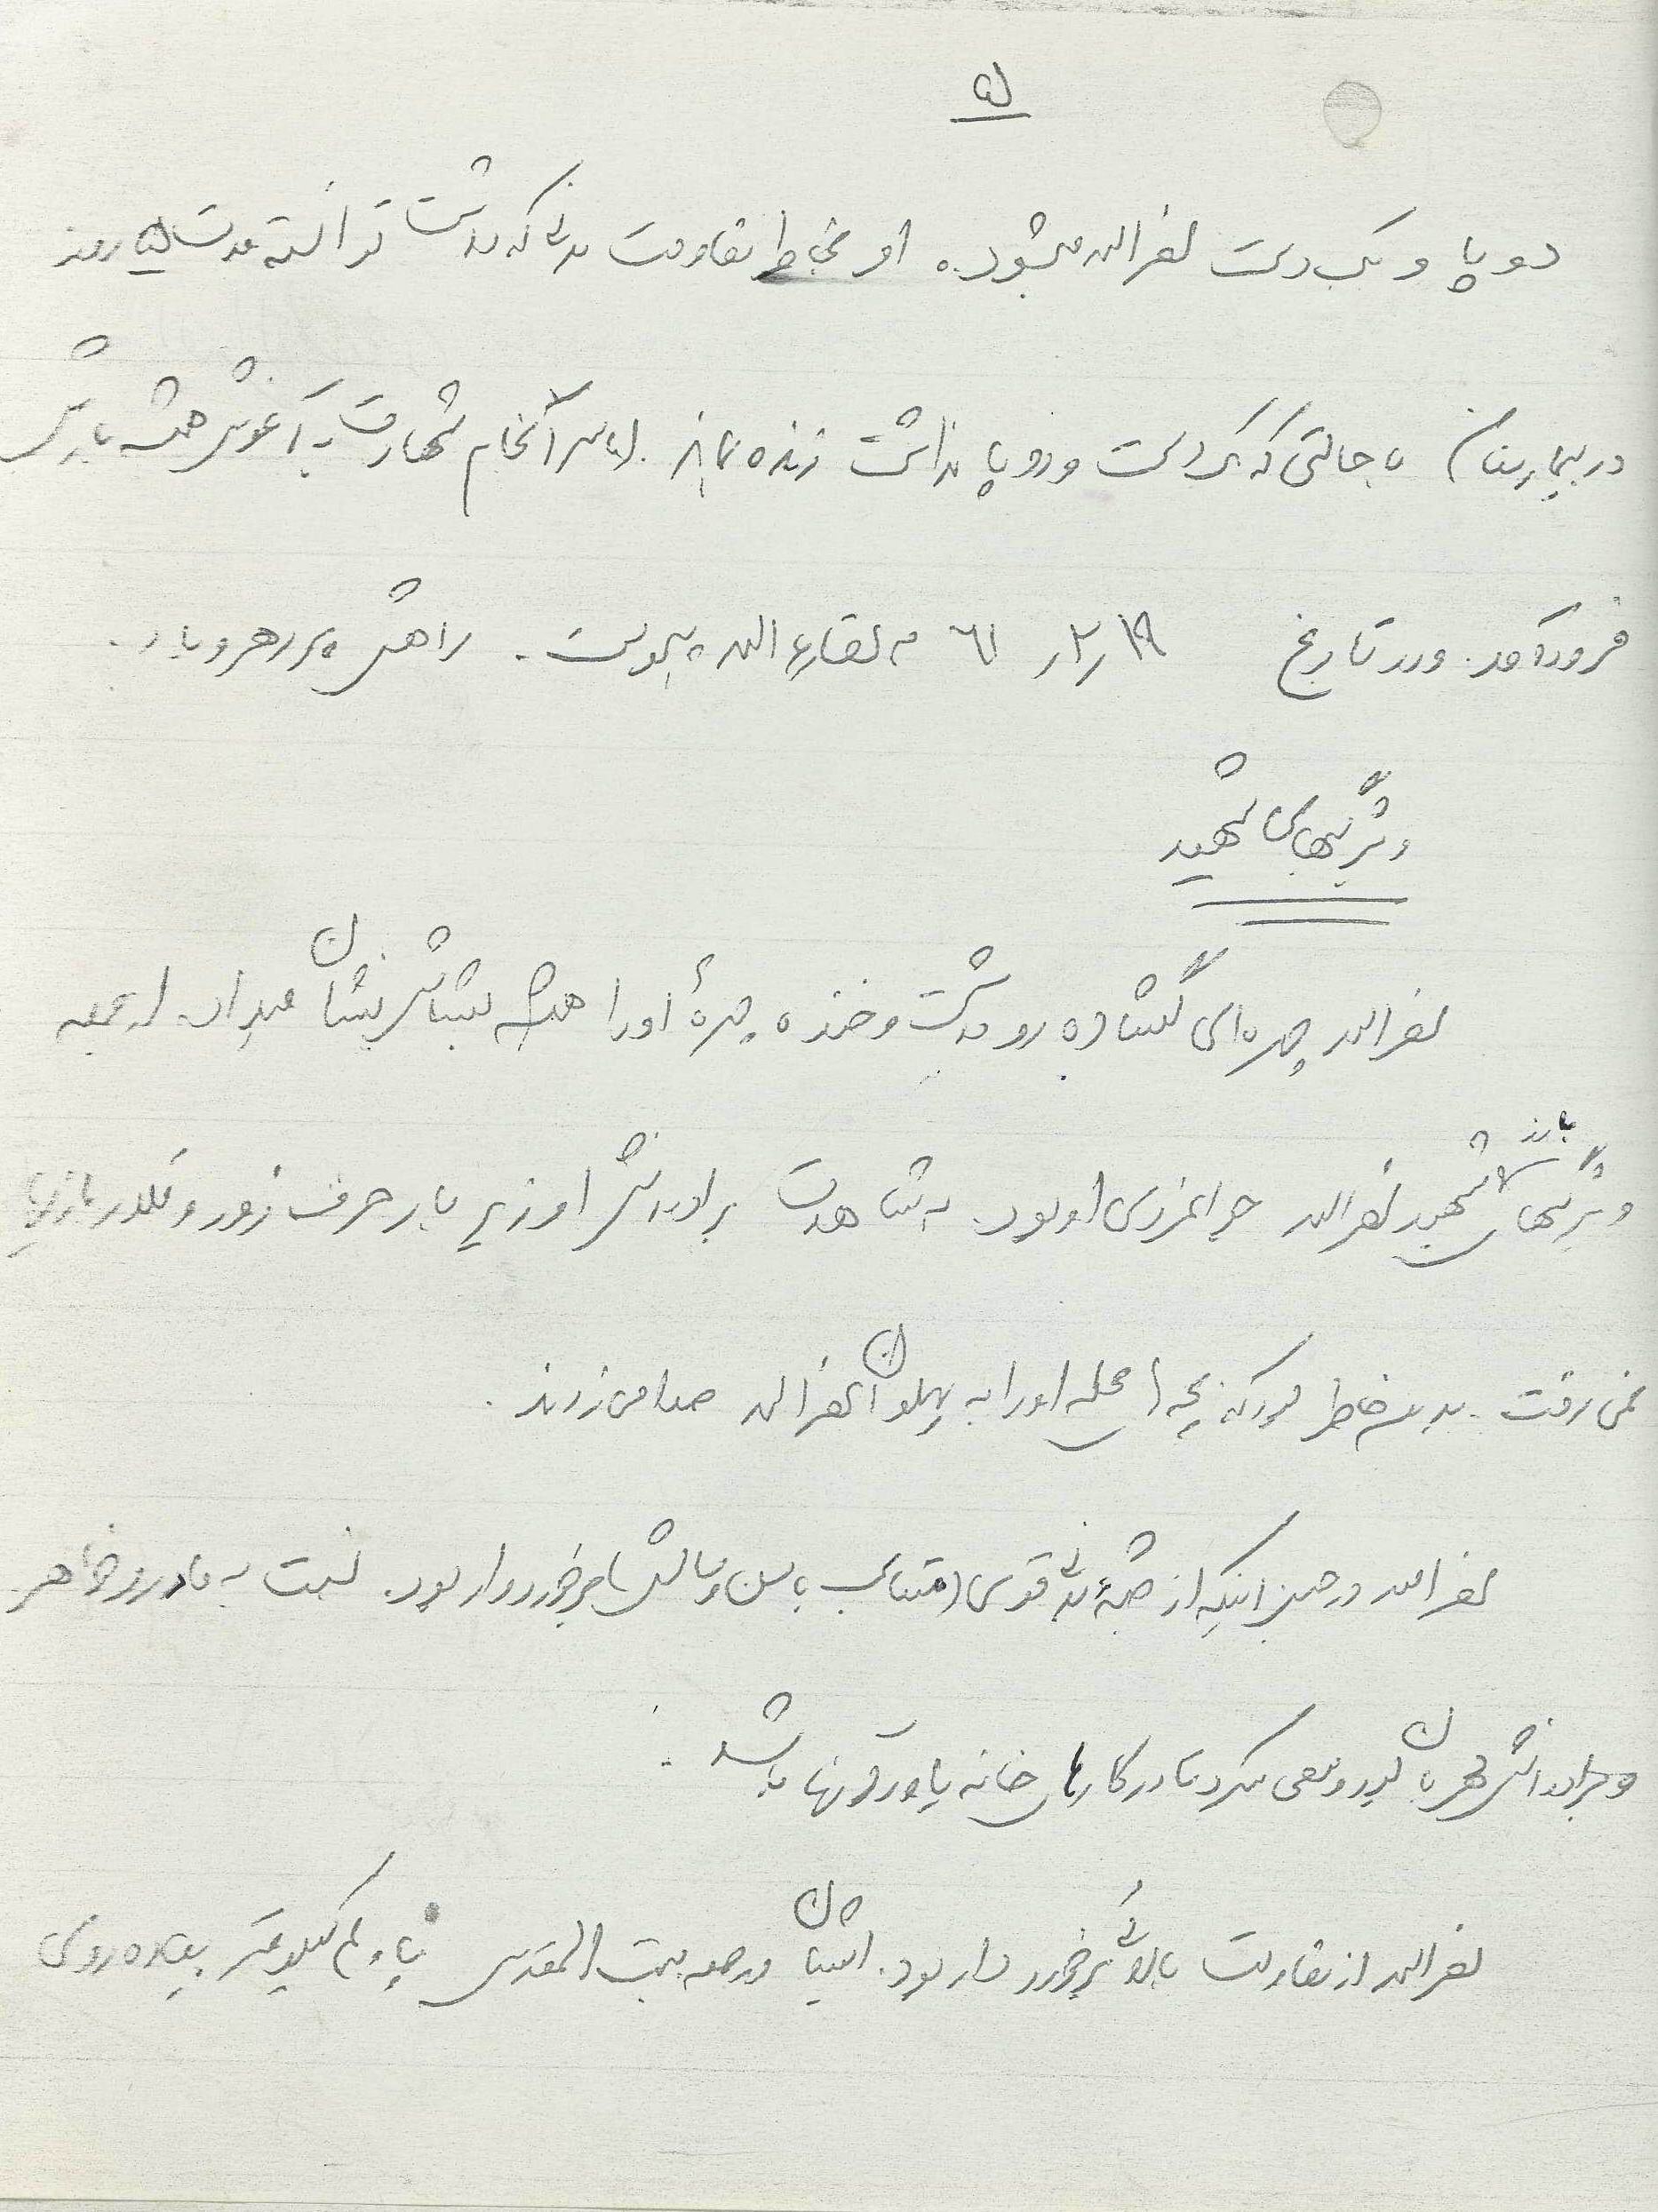 ۵
دو پا و یک دست نصرالله میشود. او بخاطر مقاومت بدنی که داشت توانسته مدت ۵ روز
در بیمارستان با حالتی که یک دست و دو پا نداشت زنده بماند. اما سرانجام شهادت به آغوش همیشه بازش
فرود آمد. و در تاریخ ۶۱/۲/۱۹ به لقاء الله پیوست. راهش پر رهرو باد.
ویژگیهای شهید
نصرالله چهره‌ای گشاده رو داشت و خنده چهرهٔ او را همیشه بشاش نشان میداد. از جمله
ویژگیهای بارز شهید نصرالله جوانمردی او بود. به شهادت برادرانش او زیر بار حرف زور و قلدر بازیها
نمی رفت. بدین خاطر بود که بچه های محله او را به پهلوان نصرالله صدا می زدند.
نصرالله در عین اینکه از جثهٔ بدنی قوی متناسب با سن و سالش برخوردار بود. نسبت به مادر و خواهر
و برادرانش مهربان بود و سعی میکرد تا در کارهای خانه یاور آنها باشد.
نصرالله از مقاومت بالائی برخوردار بود. ایشان در حمله بیت المقدس کیلومتر پیاده روی